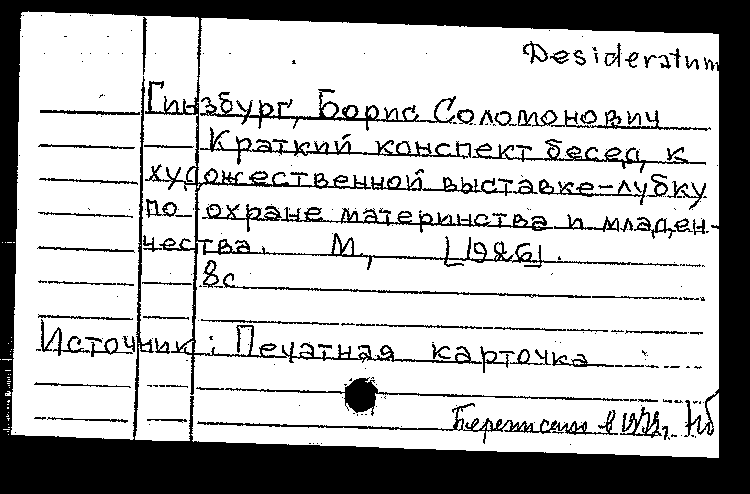 Desideratum
Гинзбург, Борис Соломонович
Краткий конспект бесед к
художественной выставке-лубку
по охране материнства и младен-
чества. М, [1926].
8с
Источник: Печатная карточка
в